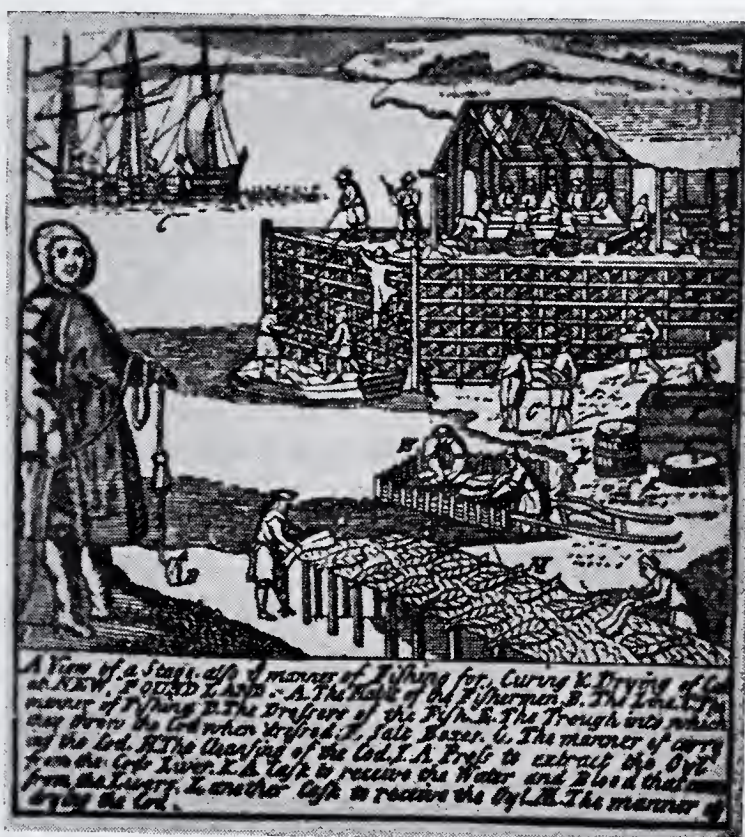 A View of a Stage & also ye manner of Fishing for, Curing & Drying of Cod
at NEW FOUND LAND. A. The Habit of the Fishermen. B. The Line. C. The
manner of Fishing. D. The Dressers of the Fish. E. The Trough into which
they throw the Cod when Dressed. F. Salt Boxes. G. The manner of carry
ing the Cod. H. The Cleansing of the Cod. I. A Press to extract the Oyl
from the Cods Liver. K. A Cask to receive the Water and Blood that comes
from the Livers. L. another Cask to receive the Oyl. M. The manner of
drying the Cod.
C
B
G
H
M